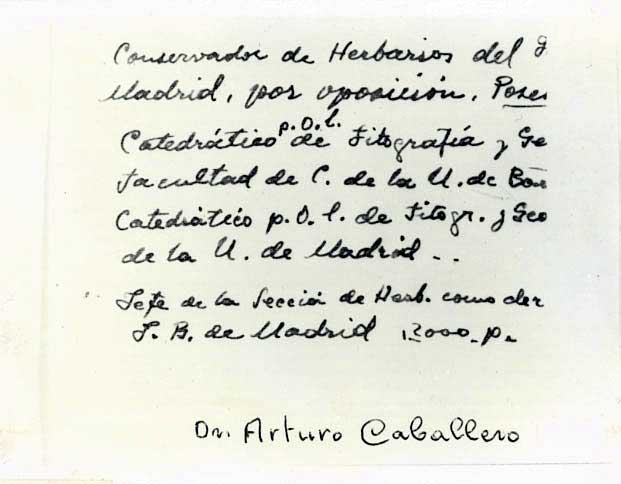 Conservador de Herbarios del J
Madrid, por oposición. Poses
Catedrático p.O.l. de Fitografía y Ge
Facultad de C. de la U. de Bar
Catedrático p.O.l. de Fitogr. y Geo
de la U. de Madrid - .
Jefe de la Sección de Herb. como der
J. B. de Madrid 12000 p.
Dr. Arturo Caballero